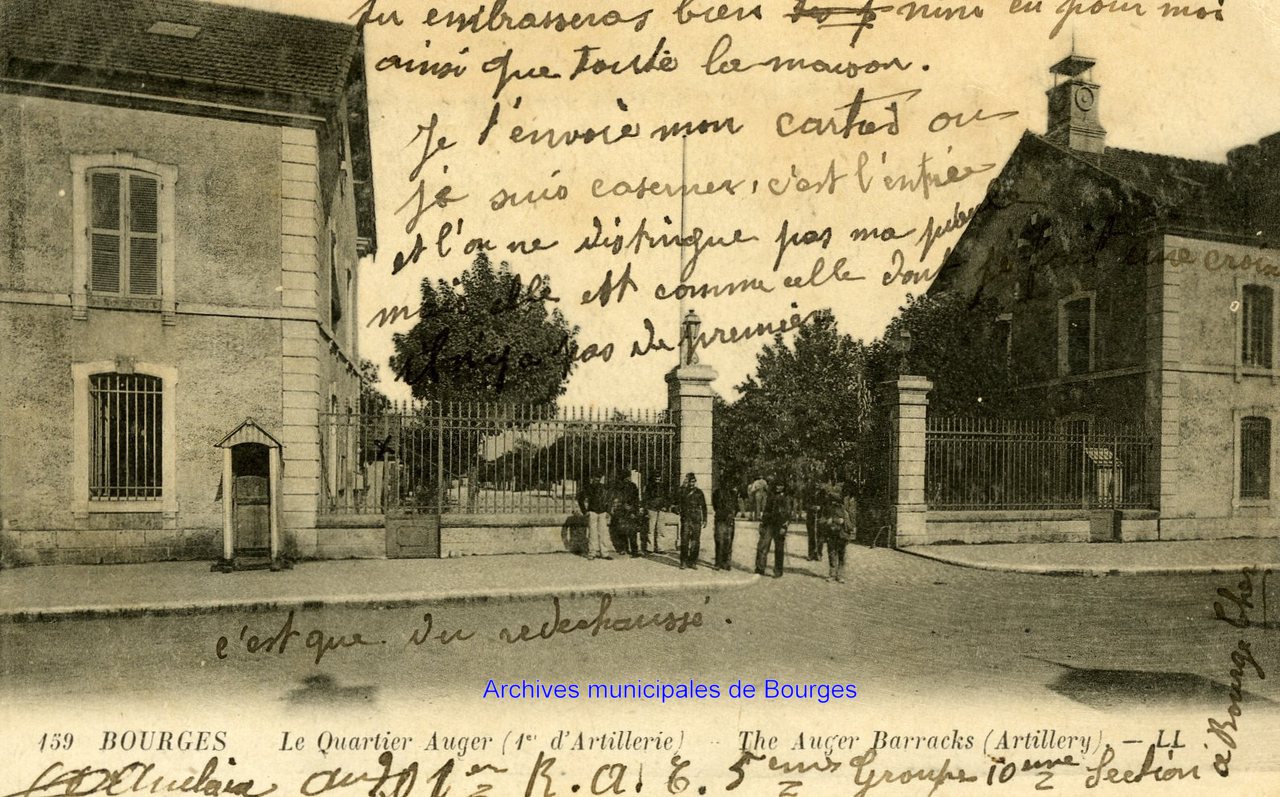 tu embrasseras bien nini eu pour moi
ainsi que toute la maison.
Je t'envoie mon carted ou
je suis caserner, c'est l'entrée
et l'on ne distingue pas ma
mais elle est comme celle dont je fais une croix
il n'y a pas de premier
c'est que du redechaussé.
Archives municipales de Bourges
159 BOURGES Le Quartier Auger (1er d'Artillerie) - The Auger Barracks (Artillery). - LL
au 1er R.A.C. 5ème Groupe 10ème Section
à Bourge Cher